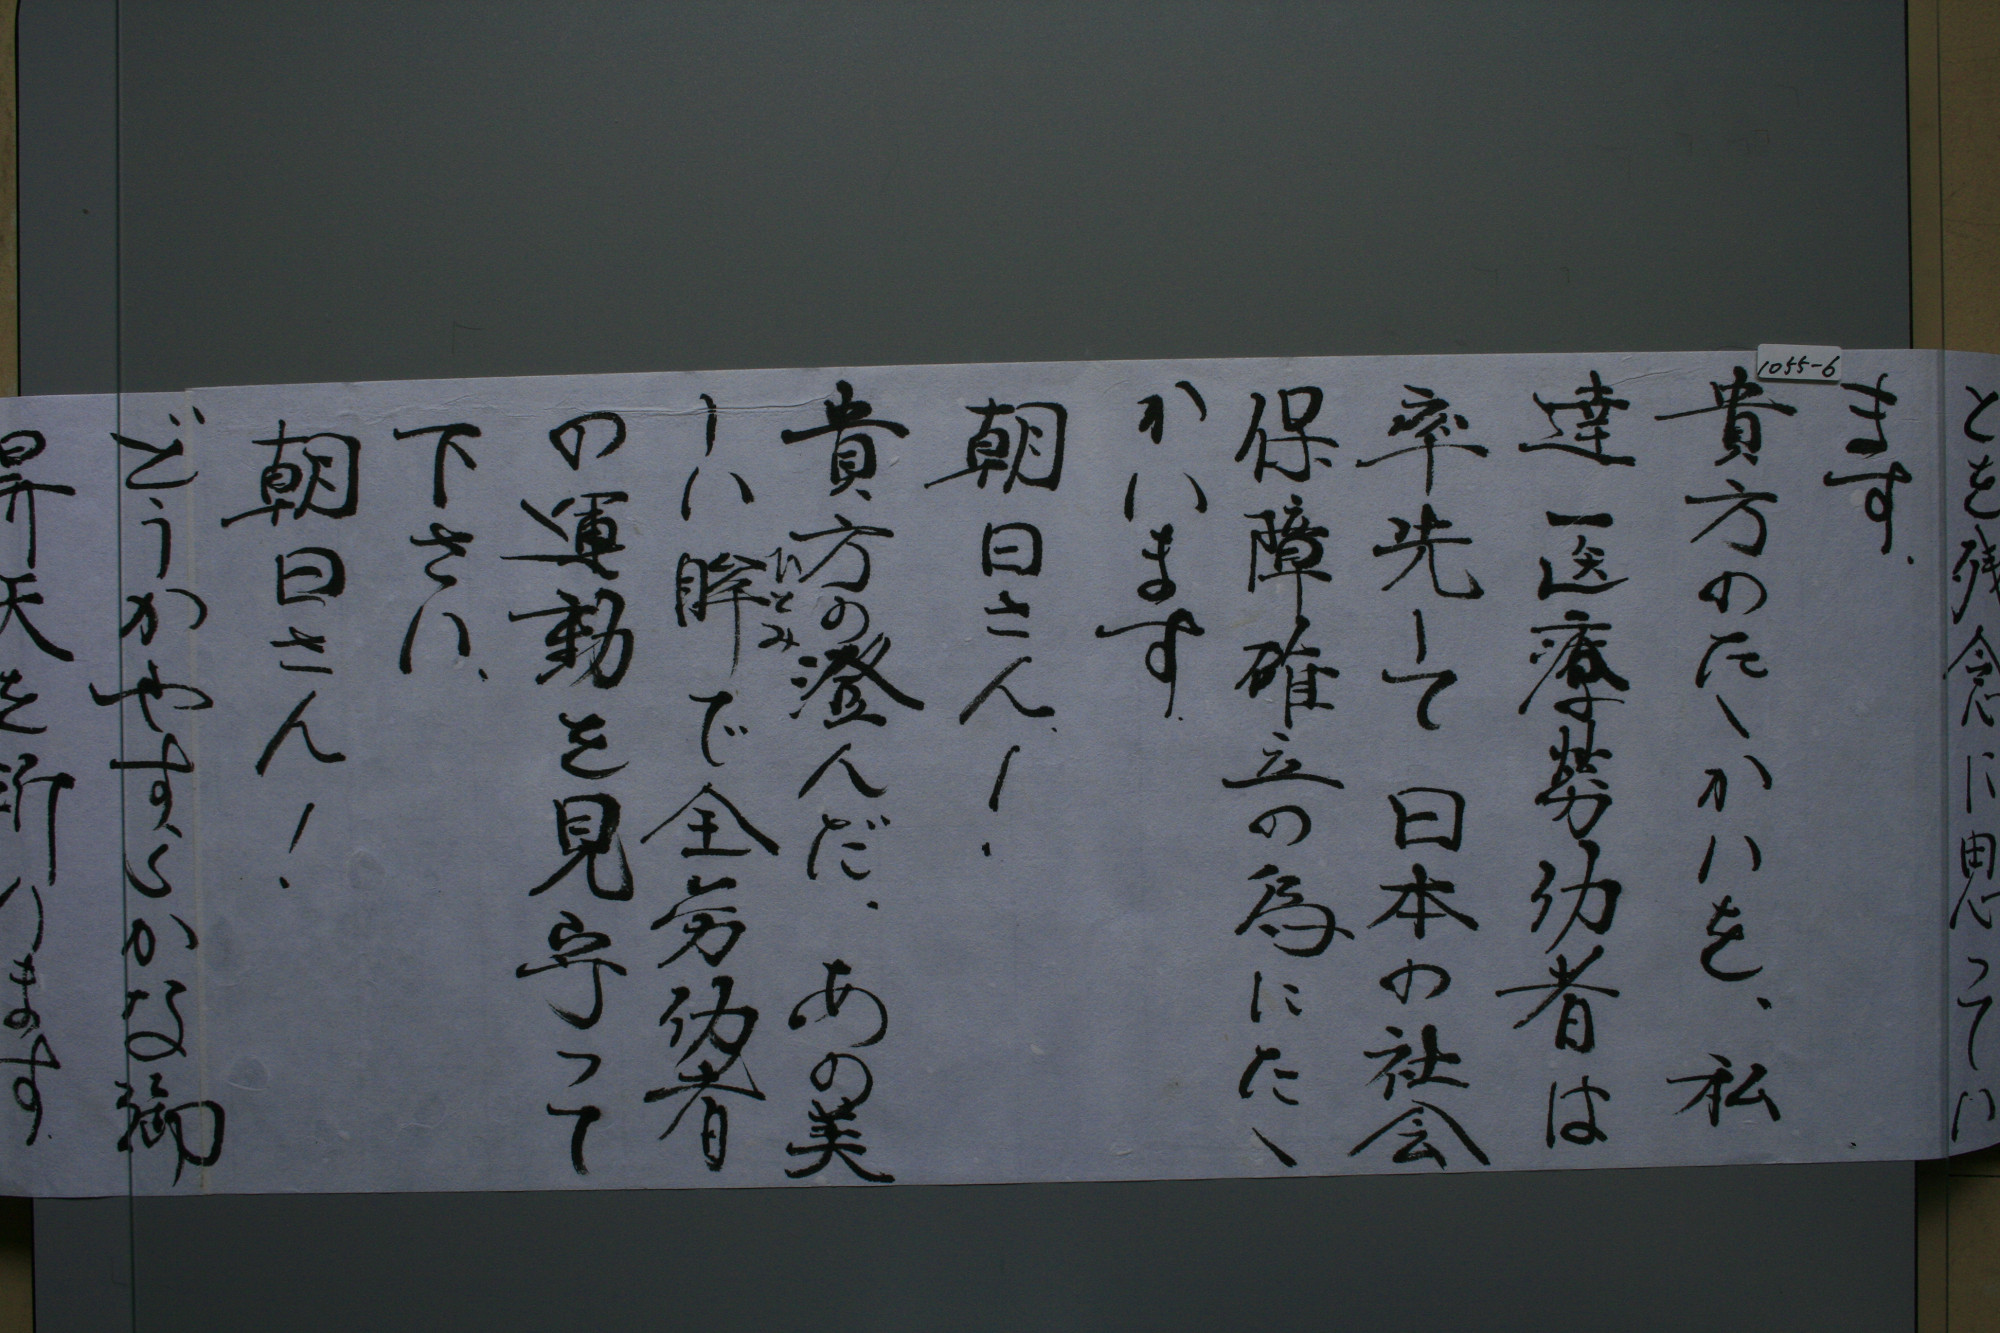 とを残念に思ってい
ます。
貴方のたゝかいを、私
達一医療労仂者は
率先して日本の社会
保障確立の為にたゝ
かいます。
朝日さん!
貴方の澄んだ、あの美
しい眸で全労仂者
ひとみ
の運動を見守って
下さい、
朝日さん!
どうかやすらかな御
昇天を祈ります。
1055-6